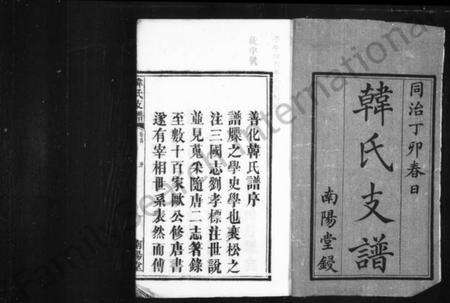 同治丁卯春日
韓氏支譜
南陽堂鋟
善化韓氏譜序
譜牒之學史學也裴松之
注三國志劉孝標注世說
並見蒐采隨唐二志著錄
至數十百家歐公修唐書
遂有宰相世系表然而傅
韓氏支譜
南陽堂